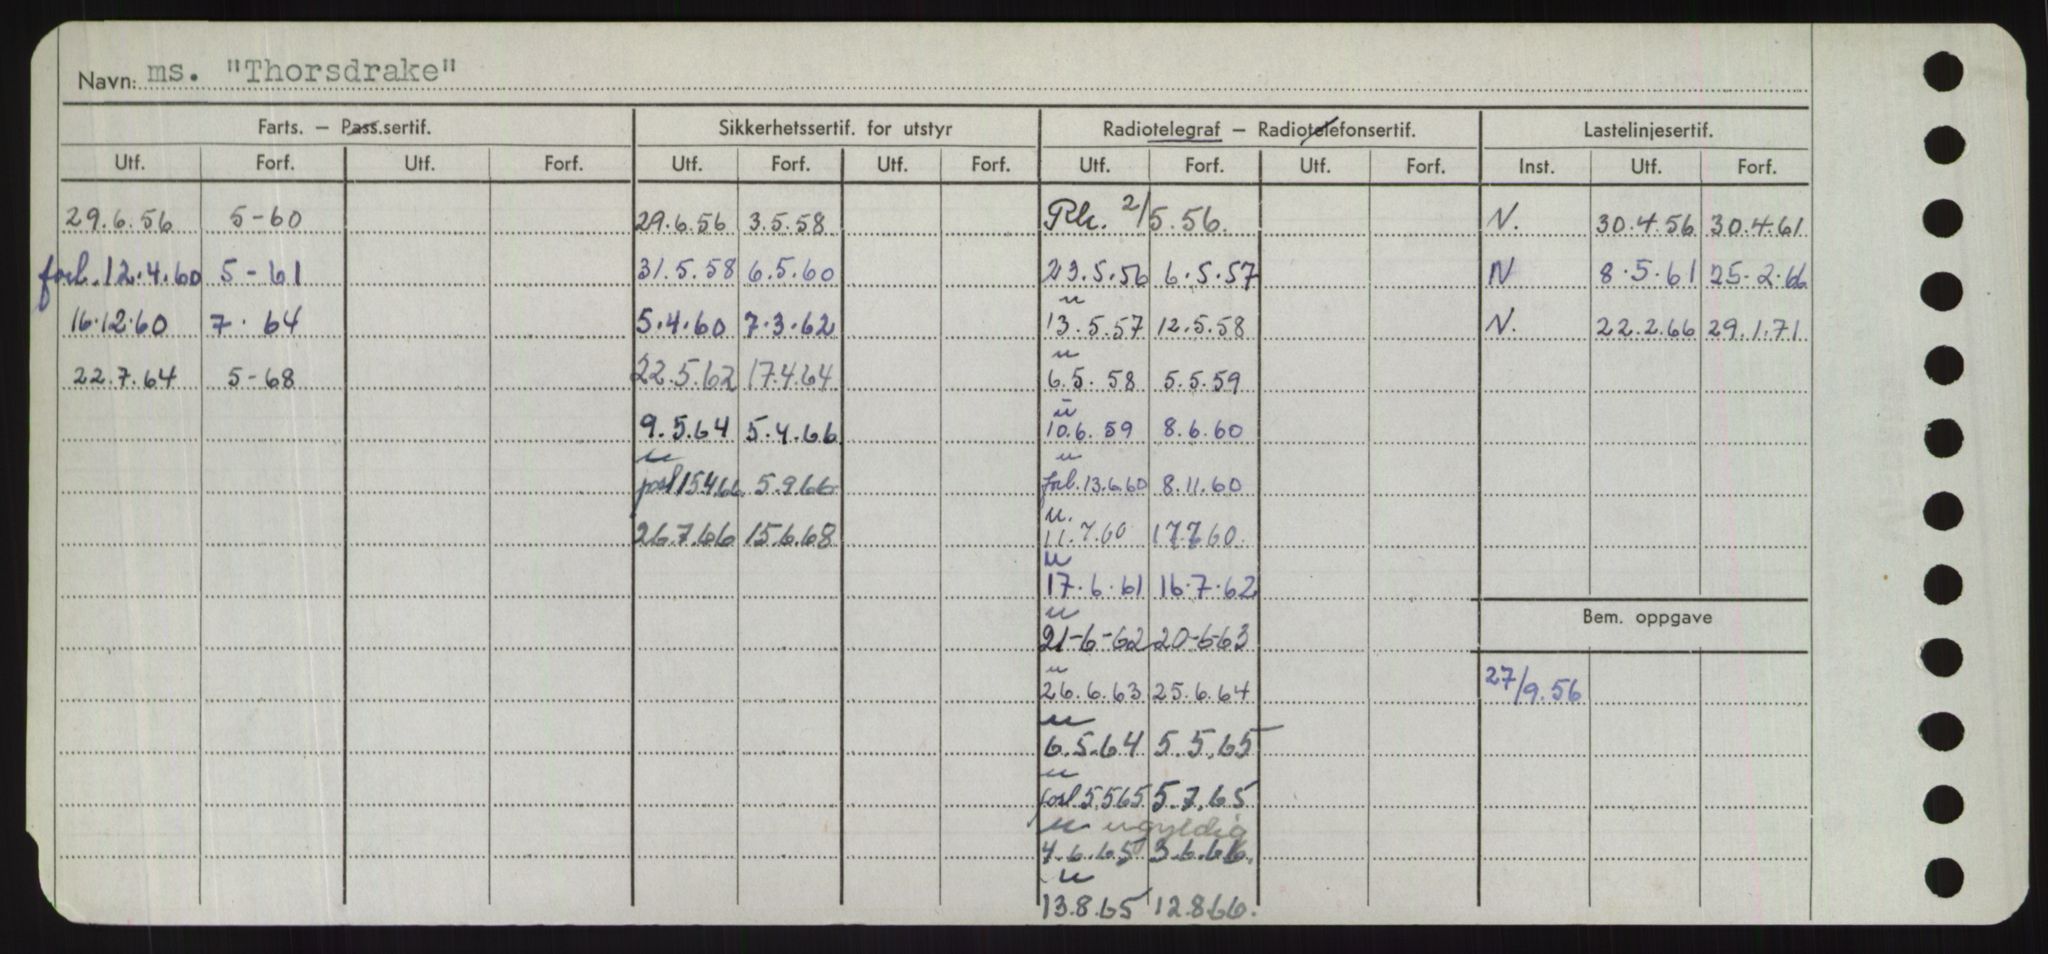 Navn: ms. "Thorsdrake"
Farts. – Pass.sertif. Sikkerhetssertif. for utstyr Radiotelegraf – Radiotelefonsertif. Lastelinjesertif.
Utf. Forf. Utf. Forf. Utf. Forf. Utf. Forf. Utf. Forf. Utf. Forf. Inst. Utf. Forf.
29.6.56 5-60 29.6.56 3.5.58 Rk. 2/5.56. N. 30.4.56 30.4.61
forl. 12.4.60 5-61 31.5.58 6.5.60 23.5.56 6.5.57 N 8.5.61 25-2.66
u
16.12.60 7. 64 5.4.60 7.3.62 13.5.57 12.5.58 N. 22.2.66 29.1.71.
u
22.7.64 5-68 22.5.62 17.4.64 6.5.58 5.5.59
u
9.5.64 5.4.66 10.6.59 8.6.60
u u
forl 15.4.66 5.9.66 forl. 13.6.60 8.11.60
u.
26.7.66 15.6.68 11.7.60 17.7.60.
u
17.6.61 16.7.62
u
Bem. oppgave
21-6-62 20-6-63
u
26.6.63 25.6.64 27/9.56
u
6.5.64 5.5.65
u
forl 5.5.65 5.7.65
u ugyldig
4.6.65 3.6.66.
u
13.8.65 12.8.66.